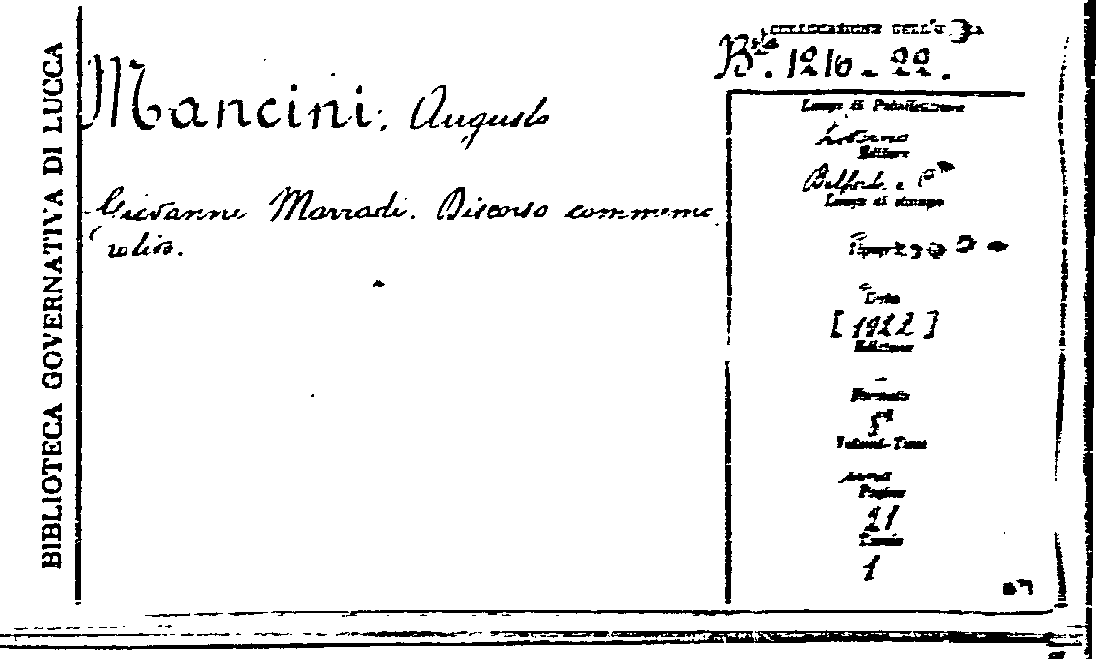 BIBLIOTECA GOVERNATIVA DI LUCCA
COLLOCAZIONE DELL'O
Bta. 1216 - 22.
Mancini, Augusto
Giovanni Marradi. Discorso commemo
rativo.
Luogo di Pubblicazione
Livorno
Editore
Belforte e C
Luogo di stampa
Data
[1922]
Edizione
Formato
8°
Volumi-Tomi
uno
Pagine
21
Tavole
1